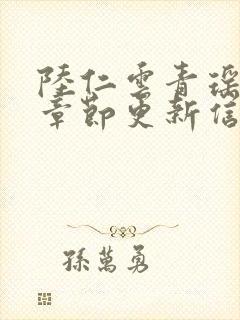 陸仁雲青瑶
章節更新信
孫萬勇